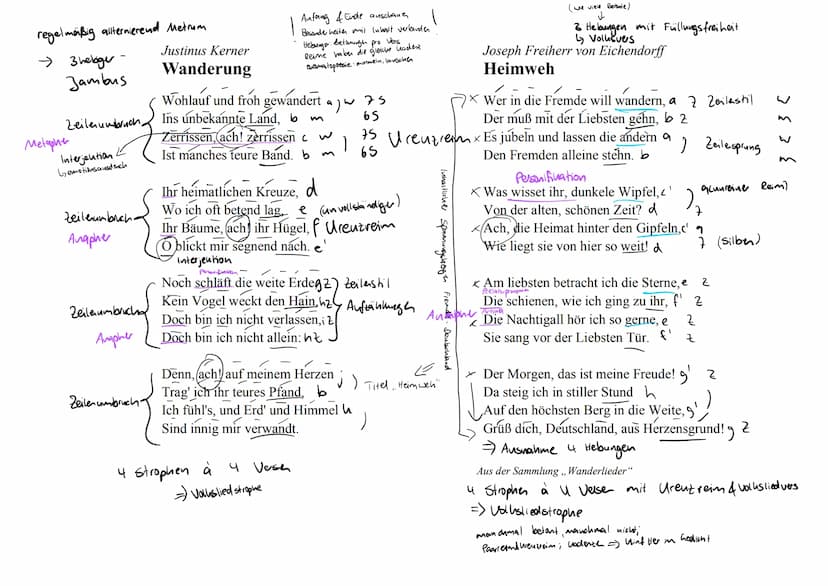 regelmäßig alternierend Metrum
→ 3hebiger
Jambus
Anfang & Ende anschauen
Besonderheiten mit Inhalt verbinden
Reime haben die gleiche Kadenz
3 Hebungen mit Füllungsfreiheit
↳ Volksvers
Justinus Kerner
Wanderung
Zeilenumbruch
Metapher
Interjektion
Wohlauf und froh gewandert a, w 7S
Ins unbekannte Land, b m 6S
Zerrissen, ach! zerrissen c w 7S
Ist manches teure Band. b m 6S
Kreuzreim
Zeilenumbruch
Anapher
Ihr heimatlichen Kreuze, d
Wo ich oft betend lag, e (unvollständiger)
Ihr Bäume, ach! ihr Hügel, f Kreuzreim
O blickt mir segnend nach. e'
Interjektion
Zeilenumbruch
Anapher
Noch schläft die weite Erde, g z Zeilenstil
Kein Vogel weckt den Hain, h z Aufzählungen
Doch bin ich nicht verlassen, i z
Doch bin ich nicht allein: h z
Zeilenumbruch
Denn, ach! auf meinem Herzen j
Trag' ich ihr teures Pfand, b
Ich fühl's, und Erd' und Himmel k
Sind innig mir verwandt.
Titel „Heimweh"
4 Strophen à 4 Versen
⇒ Volksliedstrophe
Joseph Freiherr von Eichendorff
Heimweh
Wer in die Fremde will wandern, a z Zeilenstil w
Der muß mit der Liebsten gehn, b z m
Es jubeln und lassen die andern a Zeilensprung w
Den Fremden alleine stehn. b m
Personifikation
Was wisset ihr, dunkle Wipfel, c' (unreiner Reim)
Von der alten, schönen Zeit? d z
Ach, die Heimat hinter den Gipfeln, c' 9
Wie liegt sie von hier so weit! d 7 (Silben)
Anapher
Am liebsten betracht ich die Sterne, e z
Die schienen, wie ich ging zu ihr, f' z
Die Nachtigall hör ich so gerne, e z
Sie sang vor der Liebsten Tür. f' z
Der Morgen, das ist meine Freude! g' z
Da steig ich in stiller Stund h
Auf den höchsten Berg in die Weite, g'
Grüß dich, Deutschland, aus Herzensgrund! g z
⇒ Ausnahme 4 Hebungen
Aus der Sammlung „Wanderlieder"
4 Strophen à 4 Versen mit Kreuzreim & Volksliedvers
⇒ Volksliedstrophe
manchmal betont, manchmal nicht;